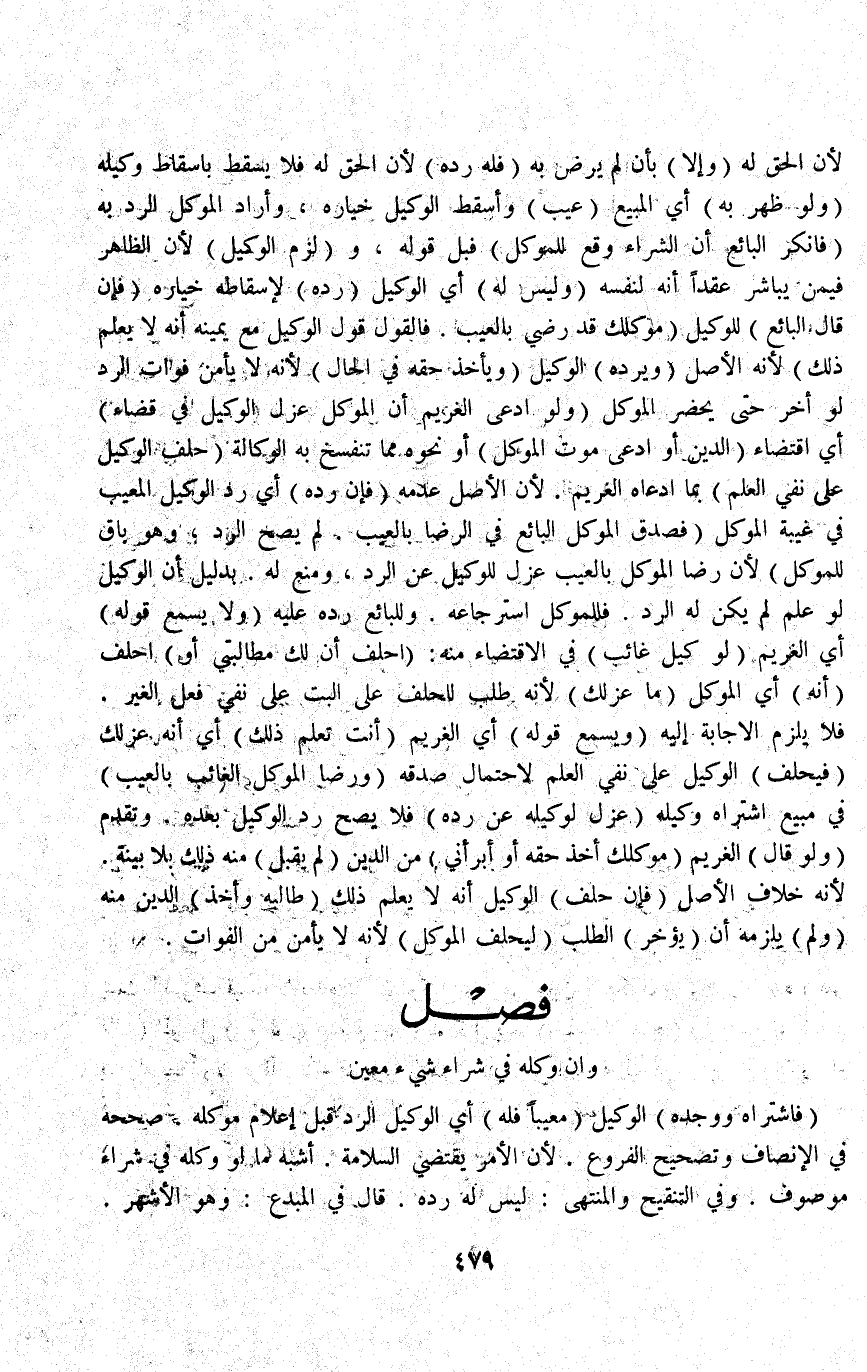 لأن الحق له ( وإلا ) بأن لم يرض به ( فله رده ) لأن الحق له فلا يسقط باسقاط وكيله
( ولو ظهر به ) أي المبيع ( عيب ) وأسقط الوكيل خياره ، وأراد الموكل الرد به
( فانكر البائع أن الشراء وقع للموكل ) قبل قوله ، و ( لزم الوكيل ) لأن الظاهر
فيمن يباشر عقداً أنه لنفسه ( وليس له ) أي الوكيل ( رده ) لإسقاطه خياره ( فإن
قال البائع ) للوكيل ( موكلك قد رضي بالعيب . فالقول قول الوكيل مع يمينه أنه لا يعلم
ذلك ) لأنه الأصل ( ويرده ) الوكيل ( ويأخذ حقه في الحال ) لأنه لا يأمن فوات الرد
لو أخر حتى يحضر الموكل ( ولو ادعى الغريم أن الموكل عزل الوكيل في قضاء )
أي اقتضاء ( الدين أو ادعى موت الموكل ) أو نحوه مما تنفسخ به الوكالة ( حلف الوكيل
على نفي العلم ) بما ادعاه الغريم . لأن الأصل عدمه ( فإن رده ) أي رد الوكيل المعيب
في غيبة الموكل ( فصدق الموكل البائع في الرضا بالعيب . لم يصح الرد ؛ وهو باق
للموكل ) لأن رضا الموكل بالعيب عزل للوكيل عن الرد ، ومنع له . بدليل أن الوكيل
لو علم لم يكن له الرد . فللموكل استرجاعه . وللبائع رده عليه ( ولا يسمع قوله )
أي الغريم ( لو كيل غائب ) في الاقتضاء منه : ( احلف أن لك مطالبتي أو ) احلف
( أنه ) أي الموكل ( ما عزلك ) لأنه طلب للحلف على البت على نفي فعل الغير .
فلا يلزم الاجابة إليه ( ويسمع قوله ) أي الغريم ( أنت تعلم ذلك ) أي أنه عزلك
( فيحلف ) الوكيل على نفي العلم لاحتمال صدقه ( ورضا الموكل الغائب بالعيب )
في مبيع اشتراه وكيله ( عزل لوكيله عن رده ) فلا يصح رد الوكيل بعده . وتقدم
( ولو قال ) الغريم ( موكلك أخذ حقه أو أبرأني ) من الدين ( لم يقبل ) منه ذلك بلا بينة .
لأنه خلاف الأصل ( فإن حلف ) الوكيل أنه لا يعلم ذلك ( طالبه وأخذ ) الدين منه
( ولم ) يلزمه أن ( يؤخر ) الطلب ( ليحلف الموكل ) لأنه لا يأمن من الفوات .
فصل
وان وكله في شراء شيء معين
( فاشتراه ووجده ) الوكيل ( معيباً فله ) أي الوكيل الرد قبل إعلام موكله . صححه
في الإنصاف وتصحيح الفروع . لأن الأمر يقتضي السلامة . أشبه ما لو وكله في شراء
موصوف . وفي التنقيح والمنتهى : ليس له رده . قال في المبدع : وهو الأشهر .
٤٧٩